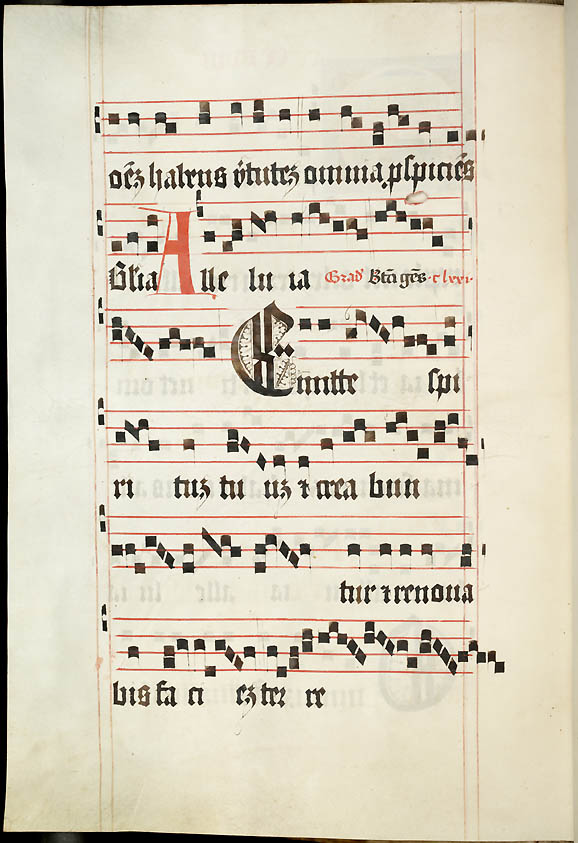 oēz habens v̓tutez omnia ꝑspiciēs
Gl̓ia Alle lu ia Grad̓ Btā gēs clxxi.
Emitte spi
ri tuz tu uz ⁊ crea bun
tur ⁊ renoua
bis fa ci ez ter re